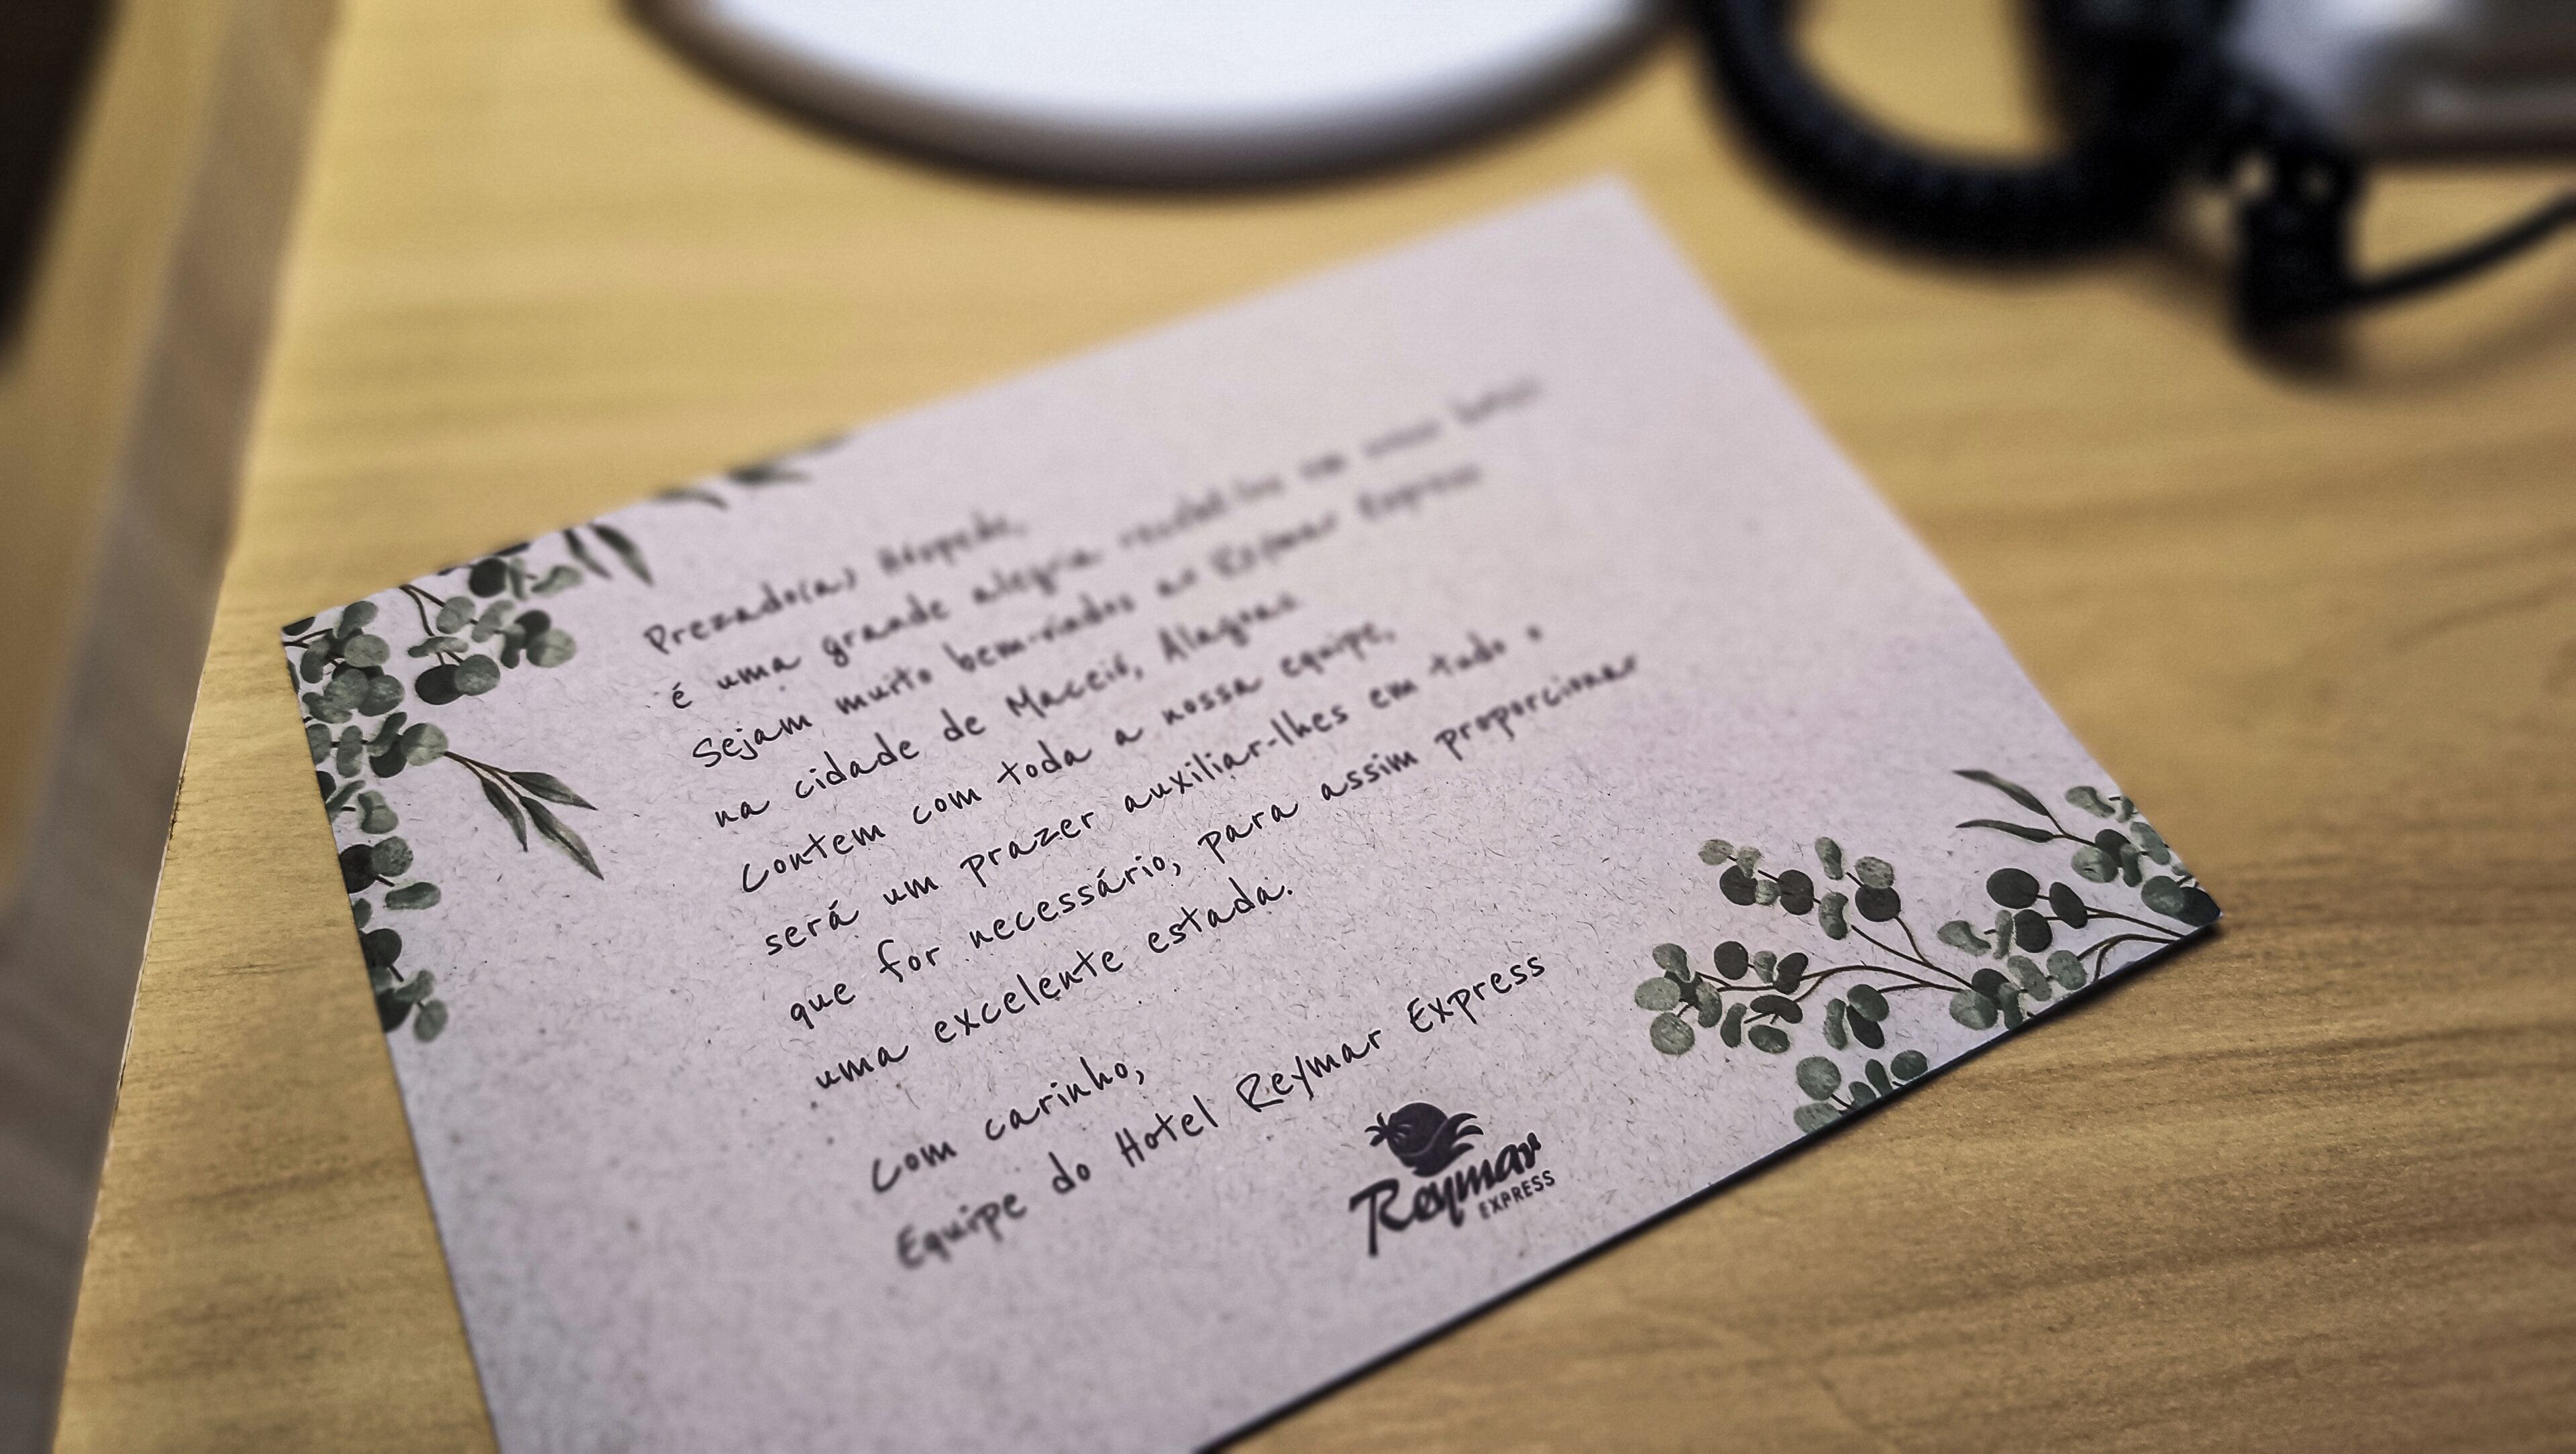 Prezado(a) Hóspede,
é uma grande alegria recebê-los em nosso hotel!
Sejam muito bem-vindos ao Reymar Express
na cidade de Maceió, Alagoas.
Contem com toda a nossa equipe,
será um prazer auxiliar-lhes em tudo o
que for necessário, para assim proporcionar
uma excelente estada.
Com carinho,
Equipe do Hotel Reymar Express
Reymar
EXPRESS